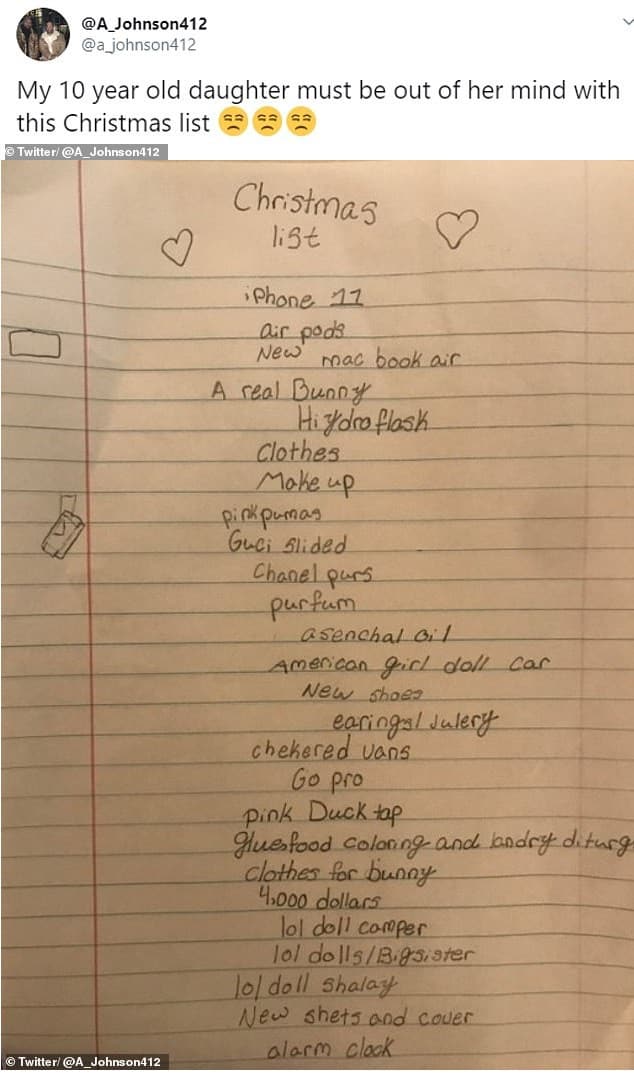 @A_Johnson412
@a_johnson412
My 10 year old daughter must be out of her mind with
this Christmas list 😒😒😒
© Twitter/ @A_Johnson412
Christmas
list
iPhone 11
air pods
New mac book air
A real Bunny
Hiydroflask
Clothes
Make up
pink pumas
Guci slided
Chanel purs
purfum
asenchal oil
American girl doll car
New shoes
earings/Julery
chekered vans
Go pro
pink Duck tap
glue, food coloring and landry diturg
clothes for bunny
4,000 dollars
lol doll camper
lol dolls/Bigsister
lol doll shalay
New shets and cover
alarm clock
© Twitter/ @A_Johnson412